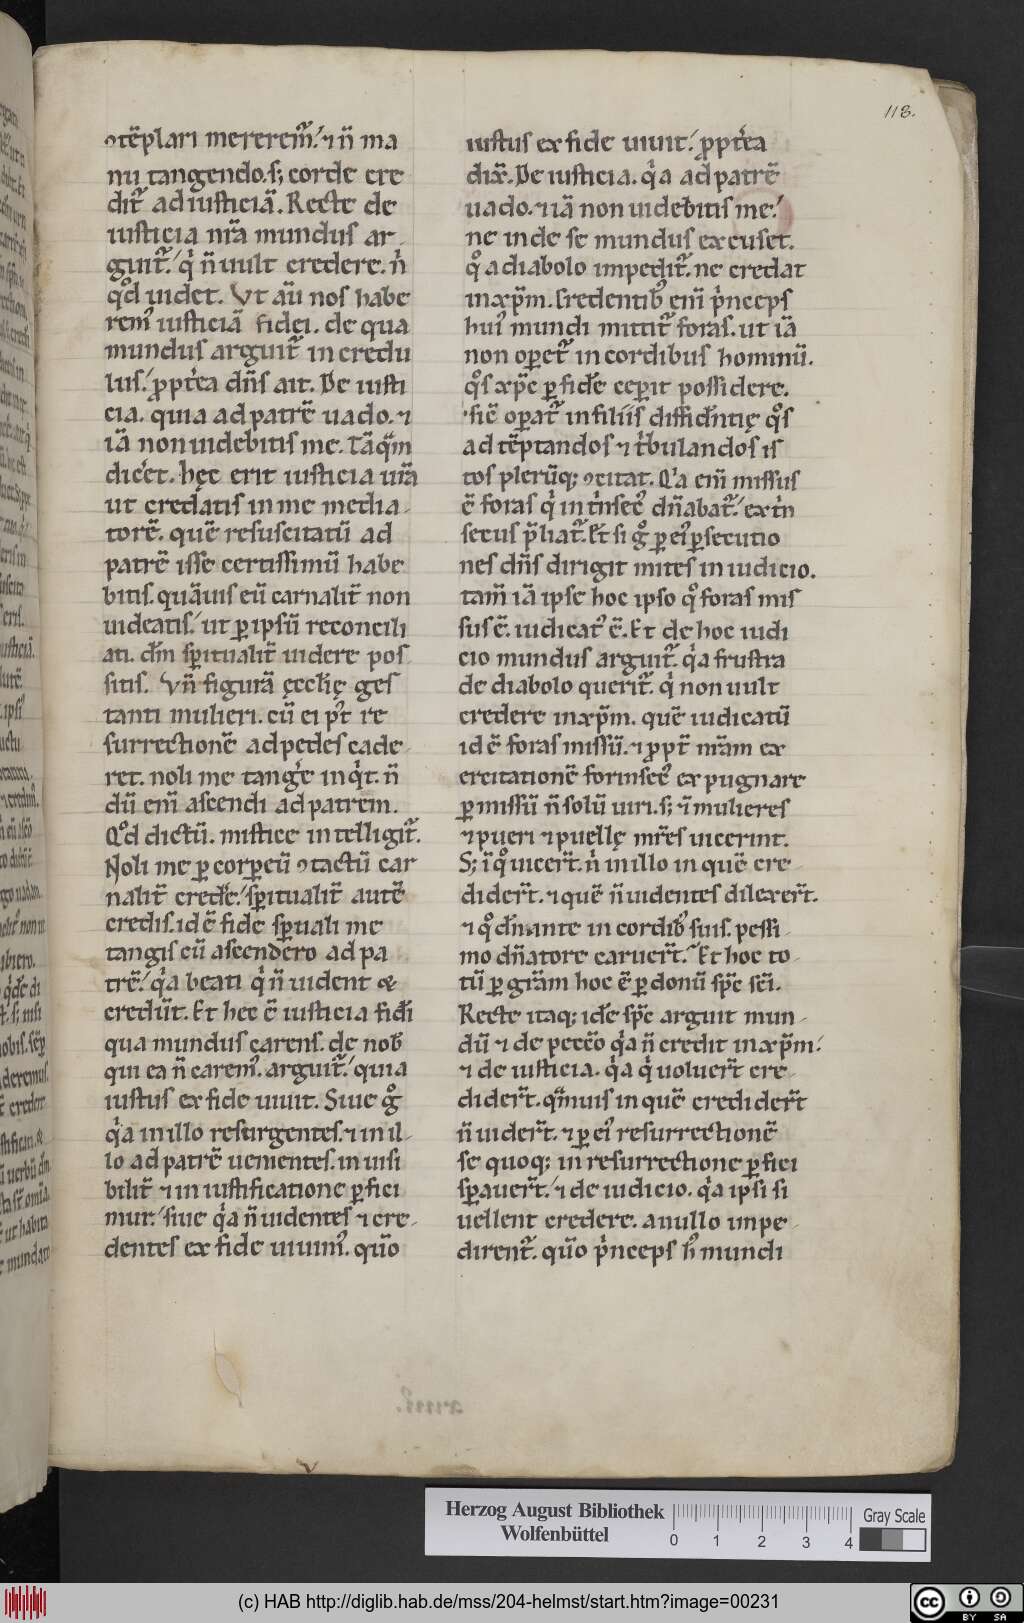 118.
ꝯtēplari mereremr̄. ⁊ n̄ ma
nu tangendo. s; corde cre
dit᷑ ad iusticiā. Recte de
iusticia nr̄a mundus ar
guit᷑. q̇ n̄ uult credere. n̄
qd̊ uidet. Vt aū nos habe
rem᷒ iusticiā fidei. de qua
mundus arguit᷑ in credu
lus. ꝓpt̄ea dn̄s ait. De iusti
cia. quia ad patrē uado. ⁊
iā non uidebitis me. Tāqm̄
dic̄et. hęc erit iusticia ur̄a
ut credatis in me media
torē. quē resuscitatū ad
patrē isse certissimū habe
bitis. quāuis eū carnalit̄ non
uideatis. ut ꝑ ipsū reconcili
ati. dm̄ spiritualit̄ uidere pos
sitis. Vn̄ figurā ęccl̄ię ges
tanti mulieri. cū ei pt̊ re
surrectionē ad pedes cade
ret. noli me tanḡe inq̇t. n̄
dū em̄ ascendi ad patrem.
Qd̊ dictū. mistice intelligit᷑.
Noli me ꝑ corꝑeū ꝯtactū car
nalit̄ cred̄e. sp̄iritualit̄ autē
credis. id ē fide sp̄uali me
tangis cū ascendero ad pa
trē. q̇a beati q̇ n̄ uident &
credūt. Et hec ē iusticia fidi
qua mundus carens. de nob̄
qui ea n̄ carem᷒. arguit᷑. quia
iustus ex fide uiuit. Siue g̊
q̇a in illo resurgentes. ⁊ in il
lo ad patrē uenientes. in uisi
bilit̄ ⁊ in iustificatione ꝑfici
mur. siue q̇a n̄ uidentes ⁊ cre
dentes ex fide uiuim᷒. quō
iustus ex fide uiuit. ꝓpt̄ea
dix̄. De iusticia. q̇a ad patrē
uado. ⁊ iā non uidebitis me.
ne inde se mundus excuset.
q̊ a diabolo impedit᷑. ne credat
in xp̄m. Credentib᷒ em̄ ṗnceps
hui᷒ mundi mittit᷑ foras. ut iā
non oꝑet᷑ in cordibus hominū.
q̊s xp̄c ꝑ fidē cepit possidere.
sic̄ oꝑat᷑ in filiis diffidn̄tię q̊s
ad tēptandos ⁊ ṫbulandos is
tos plerūq; ꝯcitat. Q̇a em̄ missus
ē foras q̇ inṫnsec᷒ dn̄abat᷑. exṫn
secus p̄liat᷑. Et̄ si g̊ ꝑ ei᷒ ꝑsecutio
nes dn̄s dirigit mites in iudicio.
tam̄ iā ipse hoc ipso q̊ foras mis
sus ē. iudicat᷒ ē. Et de hoc iudi
cio mundus arguit᷑. q̇a frustra
de diabolo querit᷑. q̇ non uult
credere in xp̄m. quē iudicatū
id ē foras missū. ⁊ ꝓpt̄ nr̄am ex
ercitationē forinsec᷒ expugnare
ꝑmissū n̄ solū uiri. s; ⁊ mulieres
⁊ pueri ⁊ puellę mr̄es uicerint.
S; ī q̊ uicer̄t. n̄ in illo in quē cre
dider̄t. ⁊ quē n̄ uidentes dilexer̄t.
⁊ q̊ dn̄ante in cordib᷒ suis. pessi
mo dn̄atore caruer̄t. Et hoc to
tū ꝑ grām hoc ē ꝑ donū sp̄c sc̄i.
Recte itaq; idē sp̄c arguit mun
dū ⁊ de pecc̄o q̇a n̄ credit in xp̄m.
⁊ de iusticia. q̇a q̇ uoluer̄t cre
dider̄t. qm̄uis in quē credider̄t
n̄ uider̄t. ⁊ ꝑ ei᷒ resurrectionē
se quoq; in resurrectione ꝑfici
sꝑauer̄t. ⁊ de iudicio. q̇a ipsi si
uellent credere. a nullo impe
dirent᷑. quō ṗnceps h᷒ mundi
Herzog August Bibliothek
Wolfenbüttel
0 1 2 3 4
Gray Scale
(c) HAB http://diglib.hab.de/mss/204-helmst/start.htm?image=00231
cc BY SA